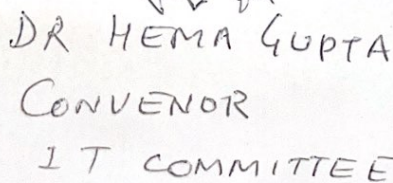 DR HEMA GUPTA
CONVENOR
IT COMMITTEE